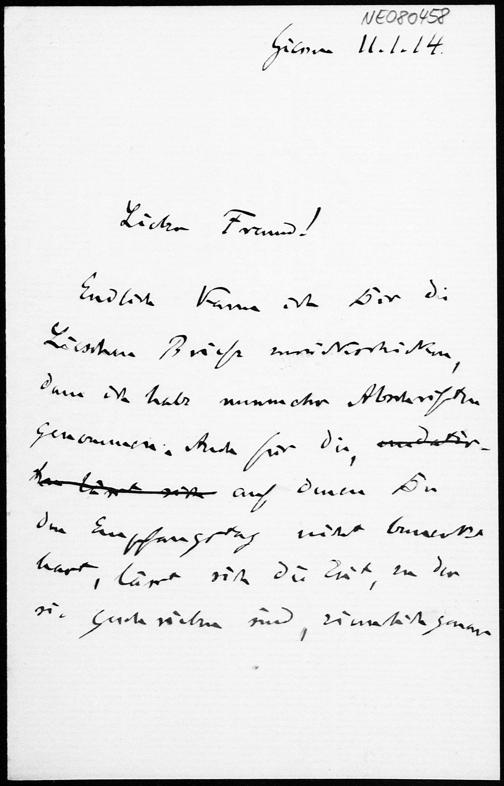 NE080458
Giessen 11.1.14.
Lieber Freund!
Endlich kann ich Dir die
Briefe zurückschicken,
denn ich habe nunmehr Abschriften
genommen. Auch für die, undatier-
ten lässt sich auf denen Du
den Empfangstag nicht bemerkt
hast, lässt sich die Zeit, zu der
sie geschrieben sind, ziemlich genau